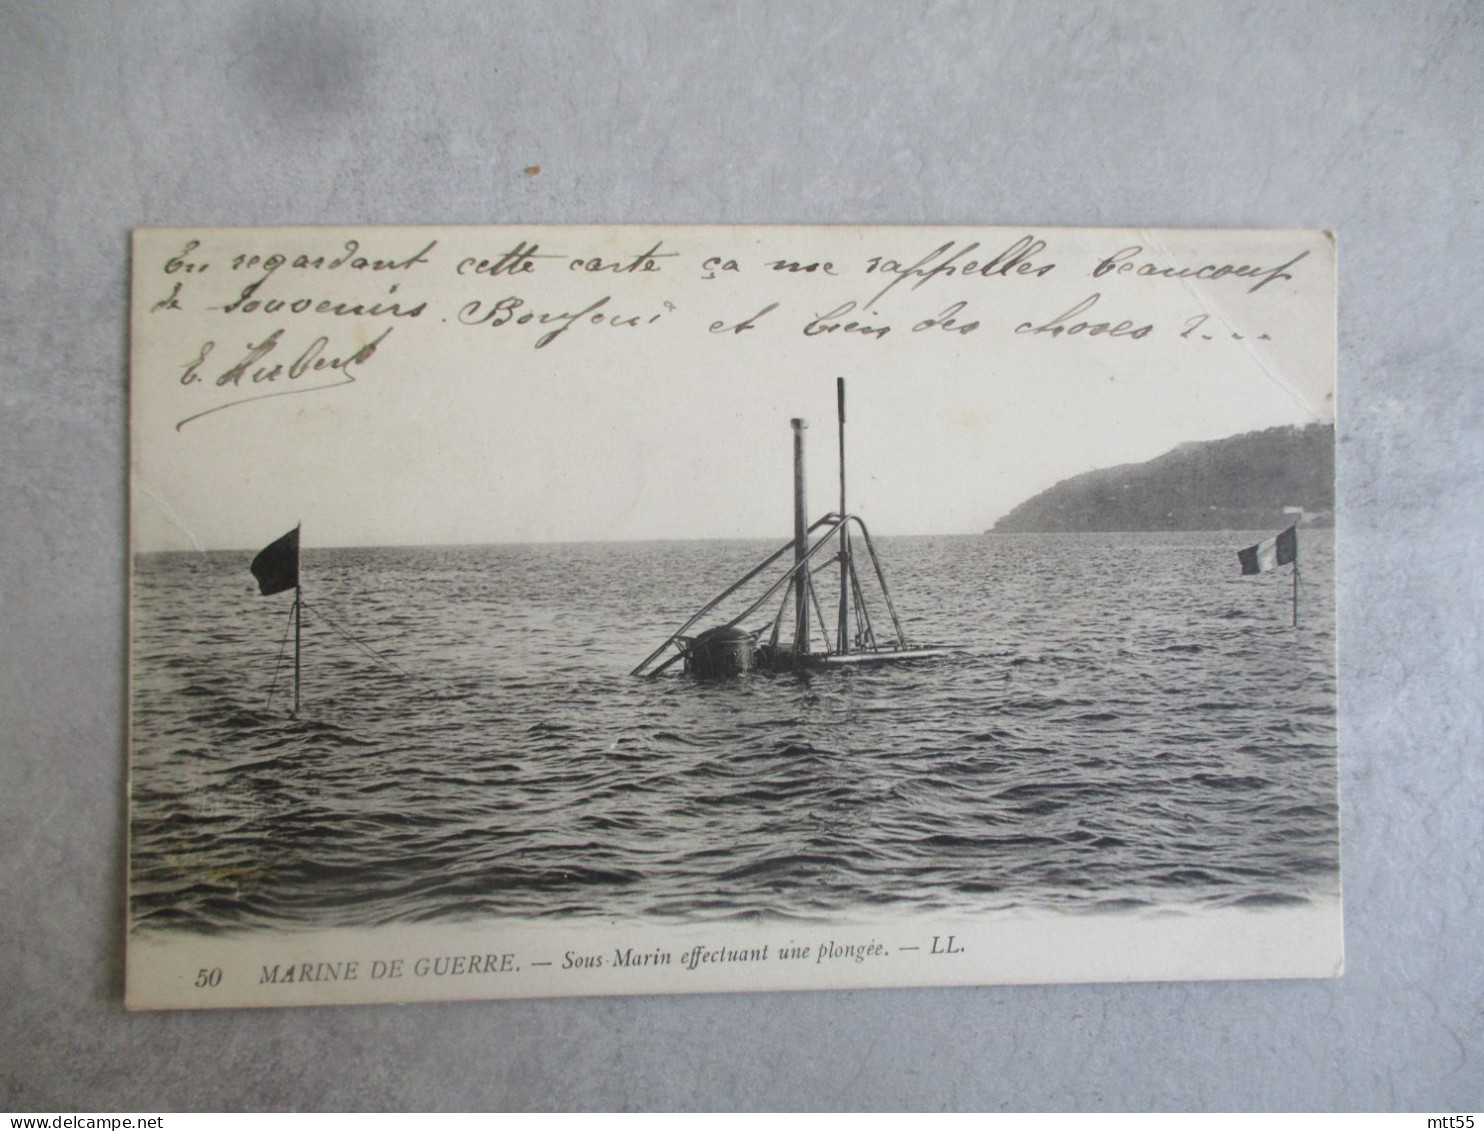 En regardant cette carte ça me rappelles beaucoup
de souvenirs. Bonjour et bien des choses ? ...
E. Hubert
50 MARINE DE GUERRE. — Sous-Marin effectuant une plongée. — LL.
mtt55